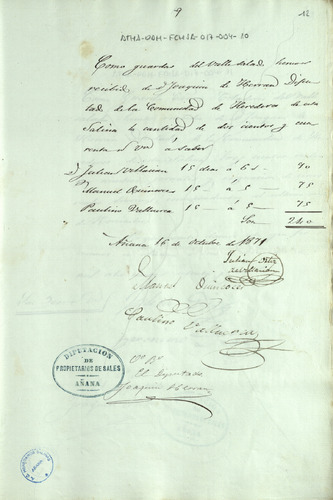 9
12
ATHA-DAH-FCHJA-017-004-10
Como guardas del Valle salado, hemos
recibido de Dn Joaquin de Herran Dipu
tado de la Comunidad de Herederos de esta
Salina la cantidad de dos cientos y cua
renta rs vn á saber
Julian 15 dias á 6 rs 90
Manuel 15 á 5 75
Paulino 15 á 5 75
Son 240
Añana 16 de Octubre de 1871
Julian
Manuel
Paulino
DIPUTACION
DE
PROPIETARIOS DE SALES
AÑANA
Vº Bº
El Diputado
Joaquin Herran